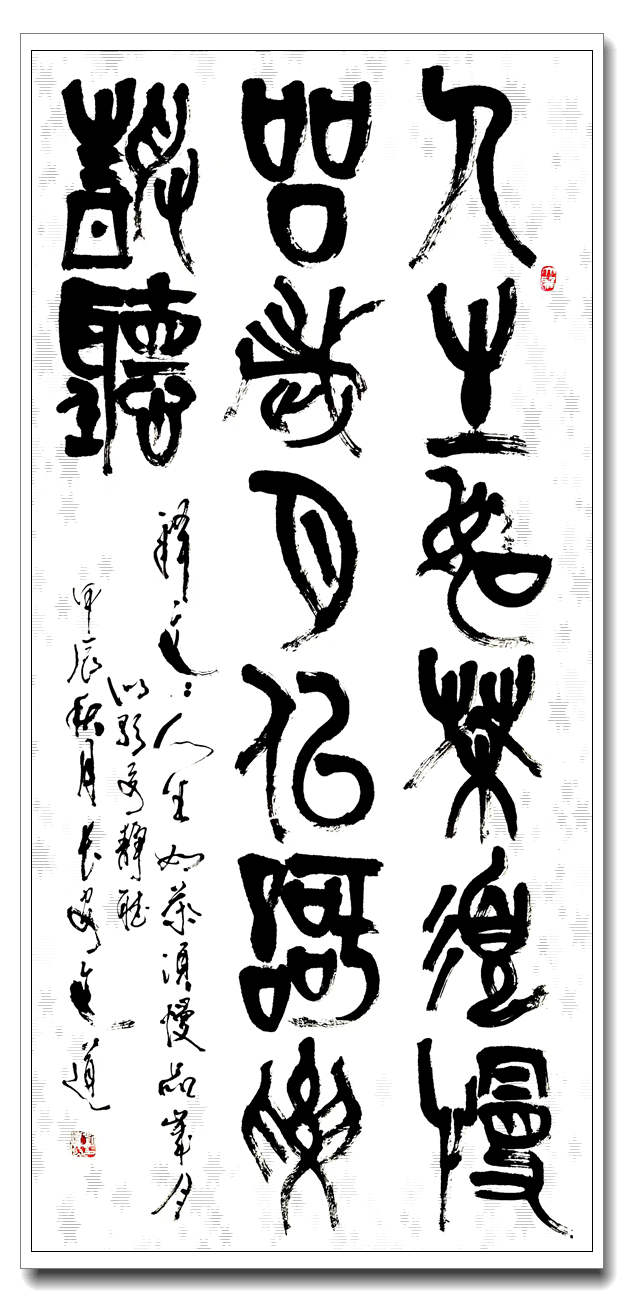 人生如茶須慢
品歲月似歌要
靜聽
釋文:人生如茶須慢品歲月
似歌要靜聽
甲辰秋月長安